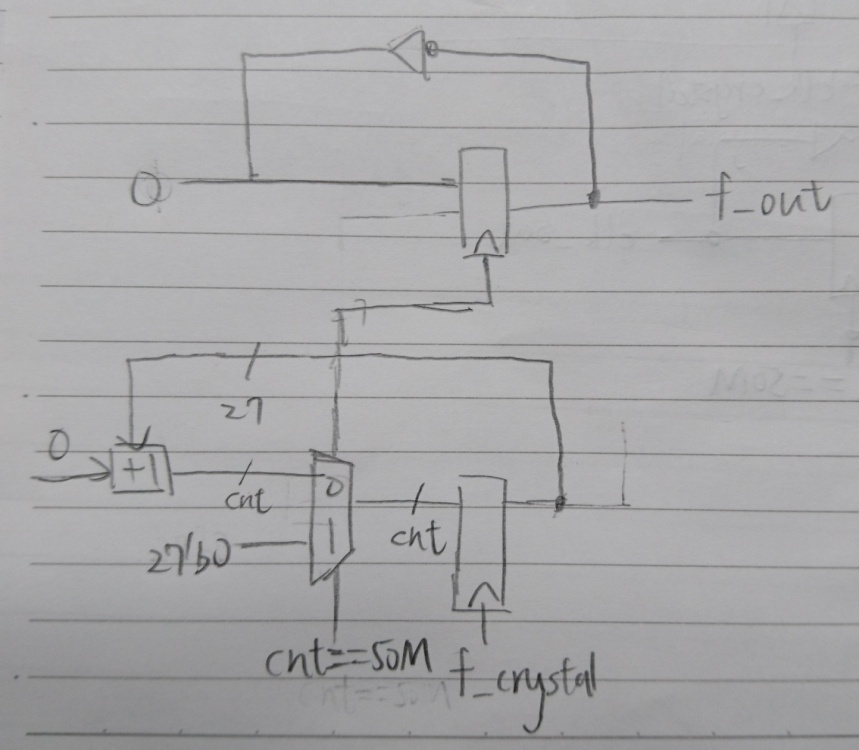 0
f_out
27
0
+1
cnt
0
1
cnt
27'b0
cnt==50M
f_crystal